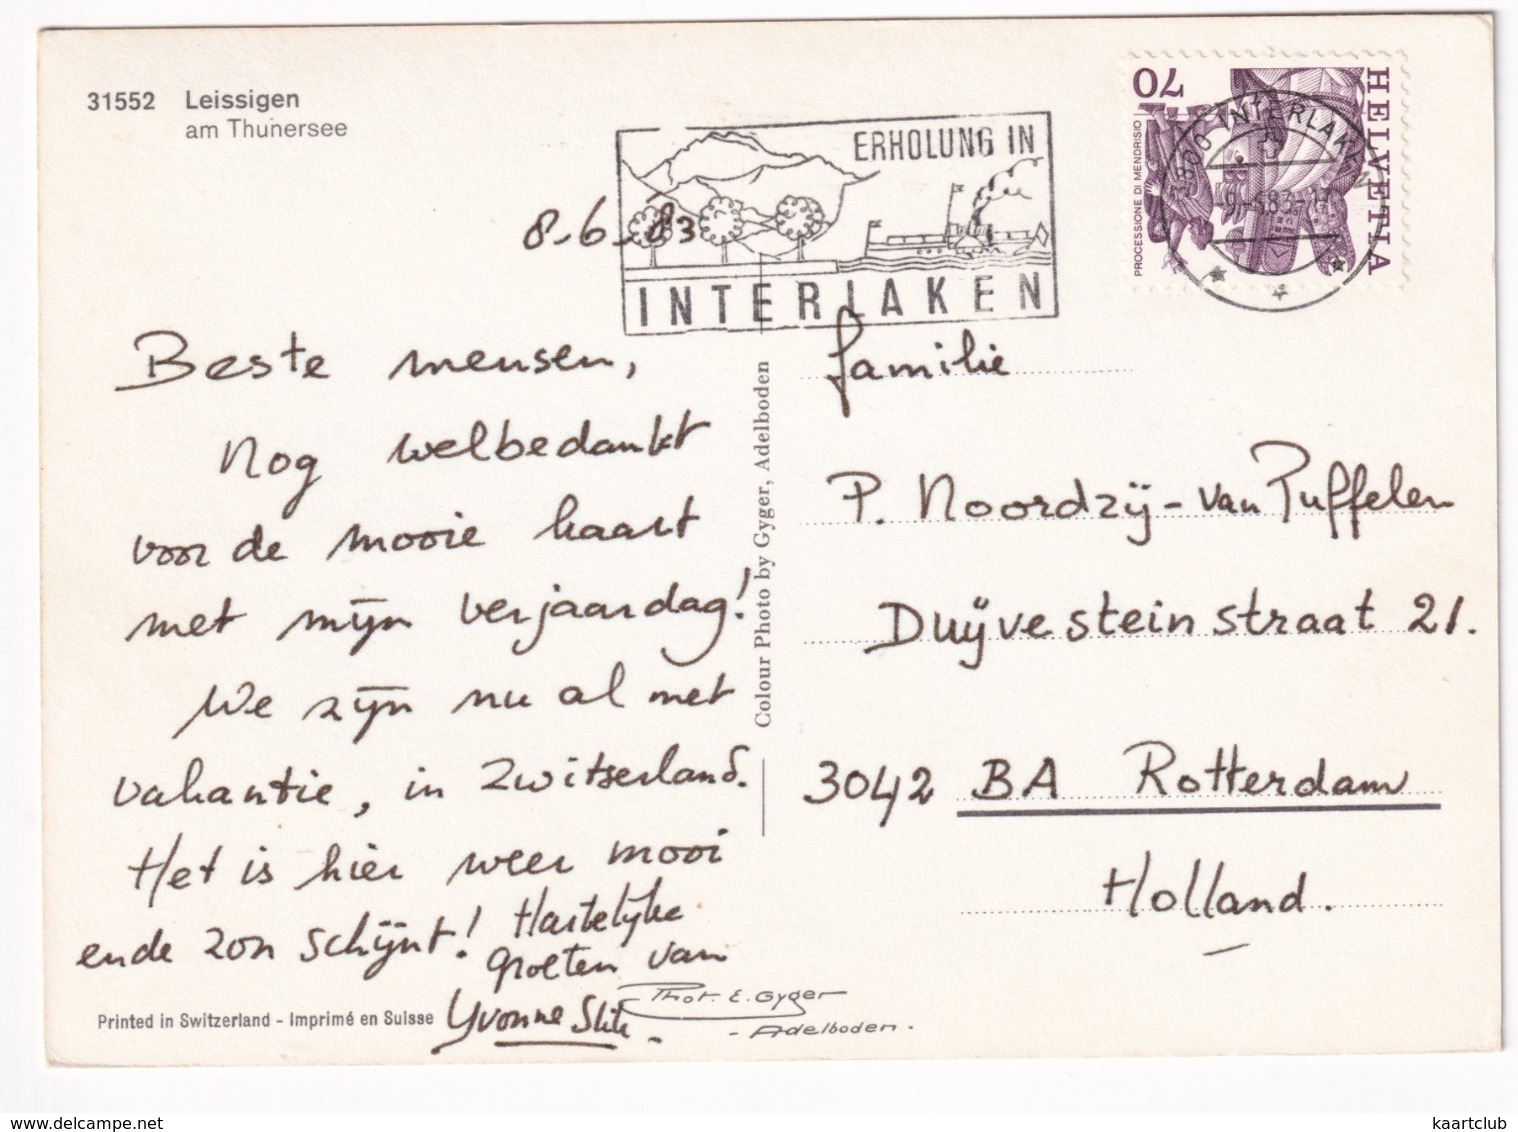 31552 Leissigen
am Thunersee
ERHOLUNG IN
INTERLAKEN
HELVETIA
70
PROCESSIONE DI MENDRISIO
3800 INTERLAKEN
8-6-83
Beste mensen,
Nog welbedankt
voor de mooie kaart
met mijn verjaardag!
We zijn nu al met
vakantie, in Zwitserland.
Het is hier weer mooi
en de zon schijnt! Hartelijke
groeten van
Yvonne
Colour Photo by Gyger, Adelboden
familie
P. Noordzij-van Puffelen
Duijvesteinstraat 21.
3042 BA Rotterdam
Holland.
Printed in Switzerland - Imprimé en Suisse
Phot. E. Gyger
- Adelboden.
www.delcampe.net
kaartclub